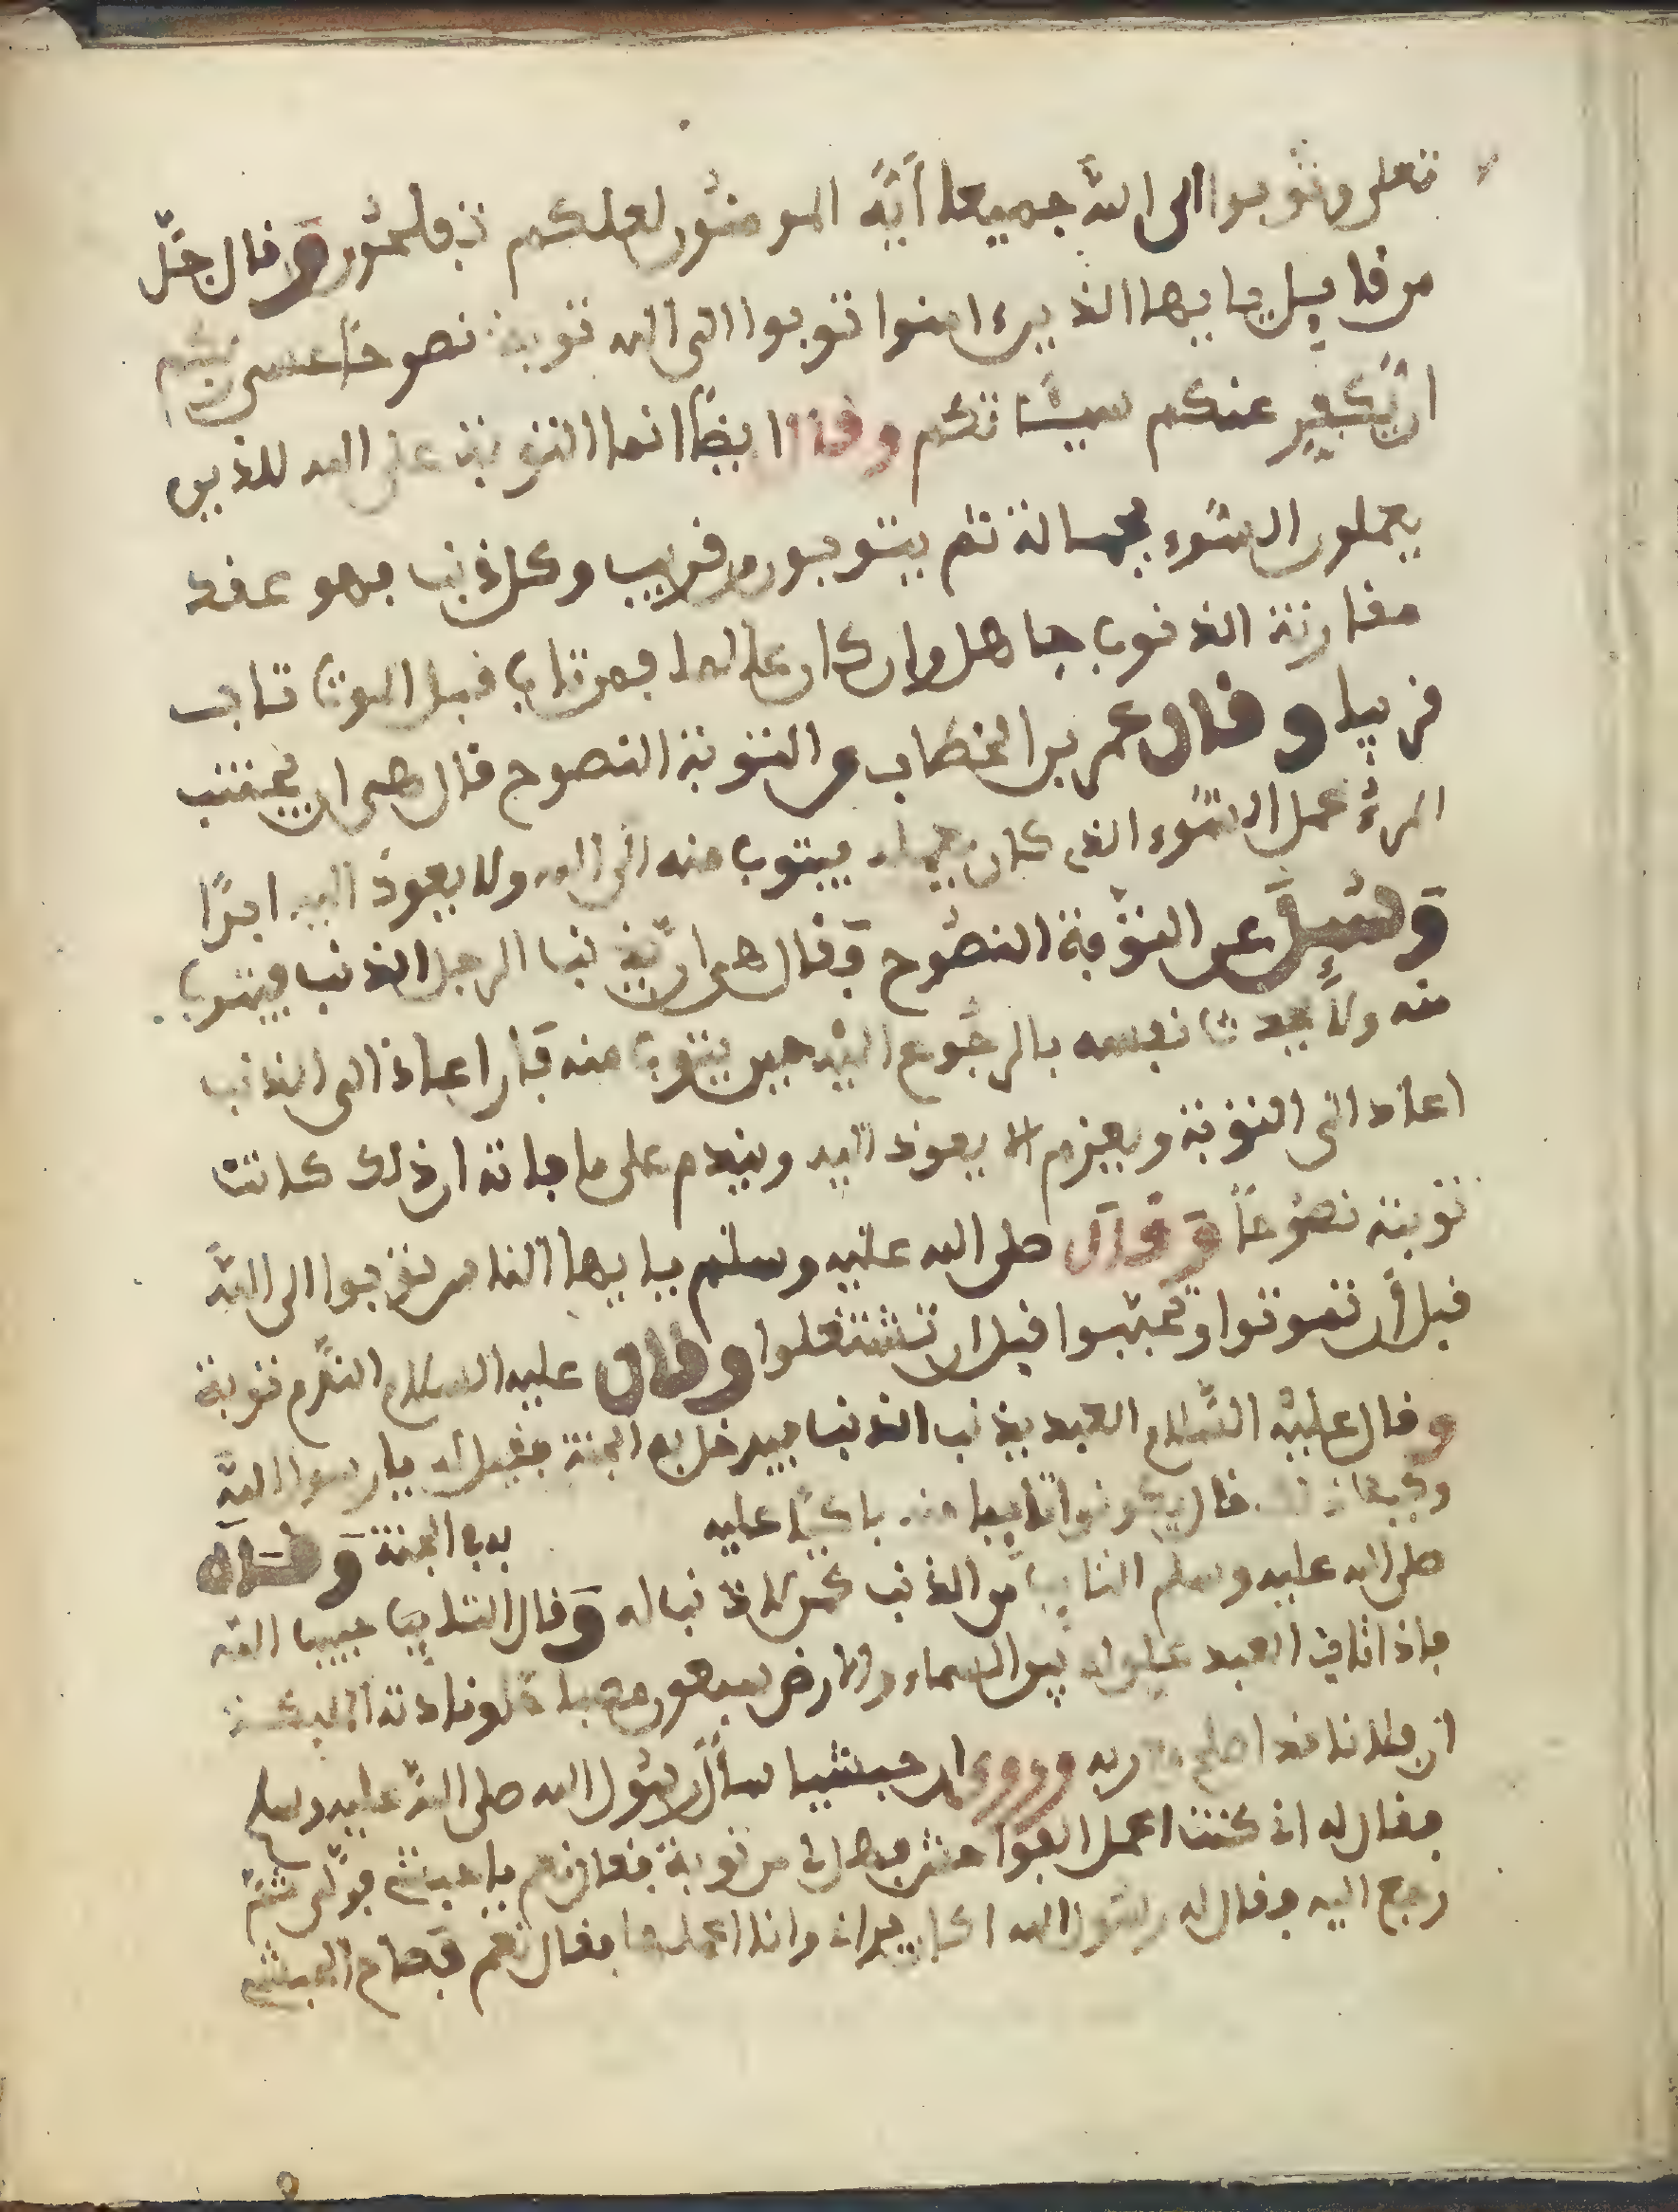 تعلى وتوبوا الى الله جميعا أيه المومنون لعلكم تفلحون وقال جل
من قايل يا يها الذين ءامنوا توبوا الى الله توبة نصوحا عسى ربكم
ان يكفر عنكم سيئاتكم وقال ايضا انما التوبة على الله للذين
يعملون السوء بجهالة ثم يتوبون من قريب وكل ذنب فهو عند
مقارنة الذنوب جاهل وان كان عالما فمن تاب قبل الموت تاب
قريبا وقال عمر بن الخطاب والتوبة النصوح قال هى ان يجتنب
المرء عمل السوء الذى كان يعمله فيتوب منه الى الله ولا يعود اليه ابدا
وسيل عن التوبة النصوح فقال هى ان يذنب الرجل الذنب فيتوب
منه ولا يحدث نفسه بالرجوع اليه حين يتوب منه فان اعاد الى الذنب
اعاد الى التوبة ويعزم الا يعود اليه ويندم على ما فاته ان ذلك كانت
توبته نصوحا وقال صلى الله عليه وسلم يا يها الناس توبوا الى الله
قبل أن تموتوا قبل ان تشتغلوا وقال عليه السلام الندم توبة
وقال عليه السلام العبد يذنب الذنب فيدخل به الجنة فقيل له يا رسول الله
وكيف ذلك قال يكون تايبا منه باكيا عليه به الجنة وقال
صلى الله عليه وسلم التايب من الذنب كمن لا ذنب له وقال التايب حبيب الله
فاذا تاب العبد بين السماء والارض سبعون الملايكة
ان فلانا قد اصلح ربه وروى ان حبشيا سأل رسول الله صلى الله عليه وسلم
فقال له انى كنت اعمل الفواحش فهل لى من توبة فقال نعم يا حبشى فولى ثم
رجع اليه فقال له رسول الله اكان يرانى وانا اعملها فقال نعم فصاح الحبشى